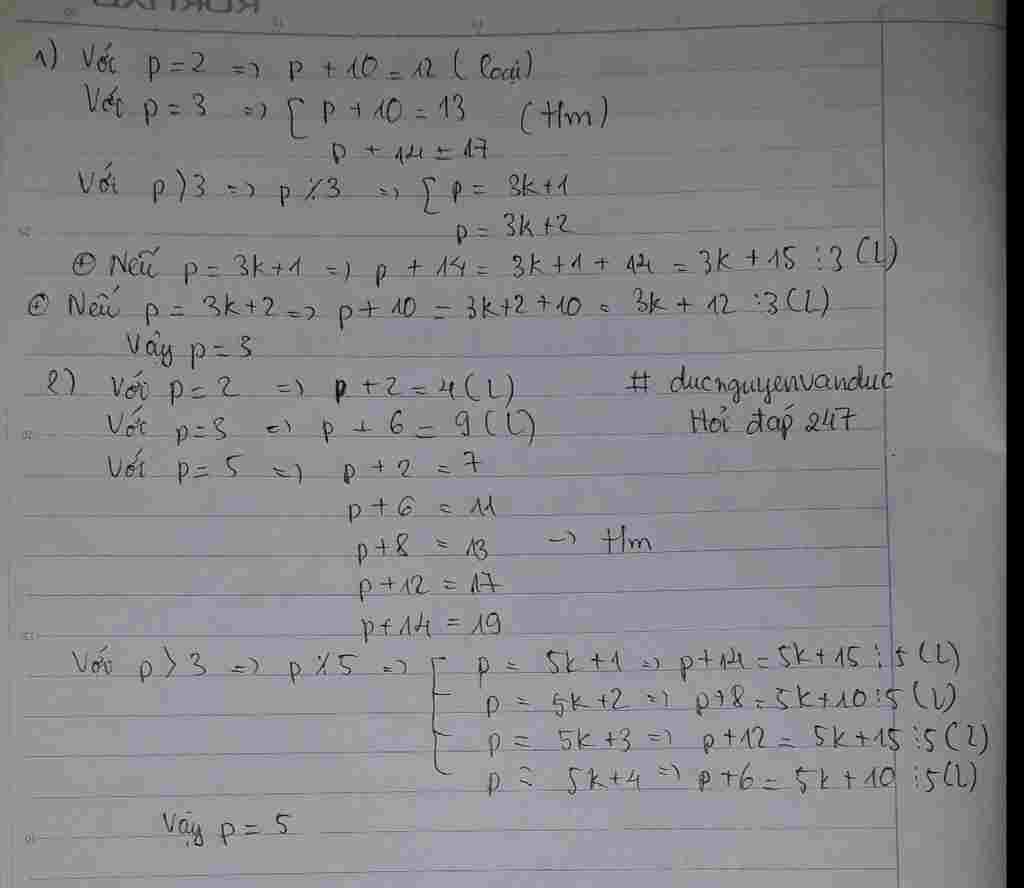 1) Với p = 2 => p + 10 = 12 (loại)
Với p = 3 => [ p + 10 = 13 (t/m)
p + 14 = 17
Với p > 3 => p ⋮̸ 3 => [ p = 3k+1
p = 3k+2
⊕ Nếu p = 3k+1 => p + 14 = 3k+1 + 14 = 3k + 15 ⋮ 3 (L)
⊕ Nếu p = 3k+2 => p + 10 = 3k+2 +10 = 3k + 12 ⋮ 3 (L)
Vậy p = 3
2) Với p = 2 => p + 2 = 4 (L) # ducnguyenvanduc
Với p = 3 => p + 6 = 9 (L) Hỏi đáp 247
Với p = 5 => p + 2 = 7
p + 6 = 11
p + 8 = 13 -> t/m
p + 12 = 17
p + 14 = 19
Với p > 3 => p ⋮̸ 5 => [ p = 5k+1 => p+14 = 5k+15 ⋮ 5 (L)
p = 5k+2 => p+8 = 5k+10 ⋮ 5 (L)
p = 5k+3 => p+12 = 5k+15 ⋮ 5 (L)
p = 5k+4 => p+6 = 5k+10 ⋮ 5 (L)
Vậy p = 5